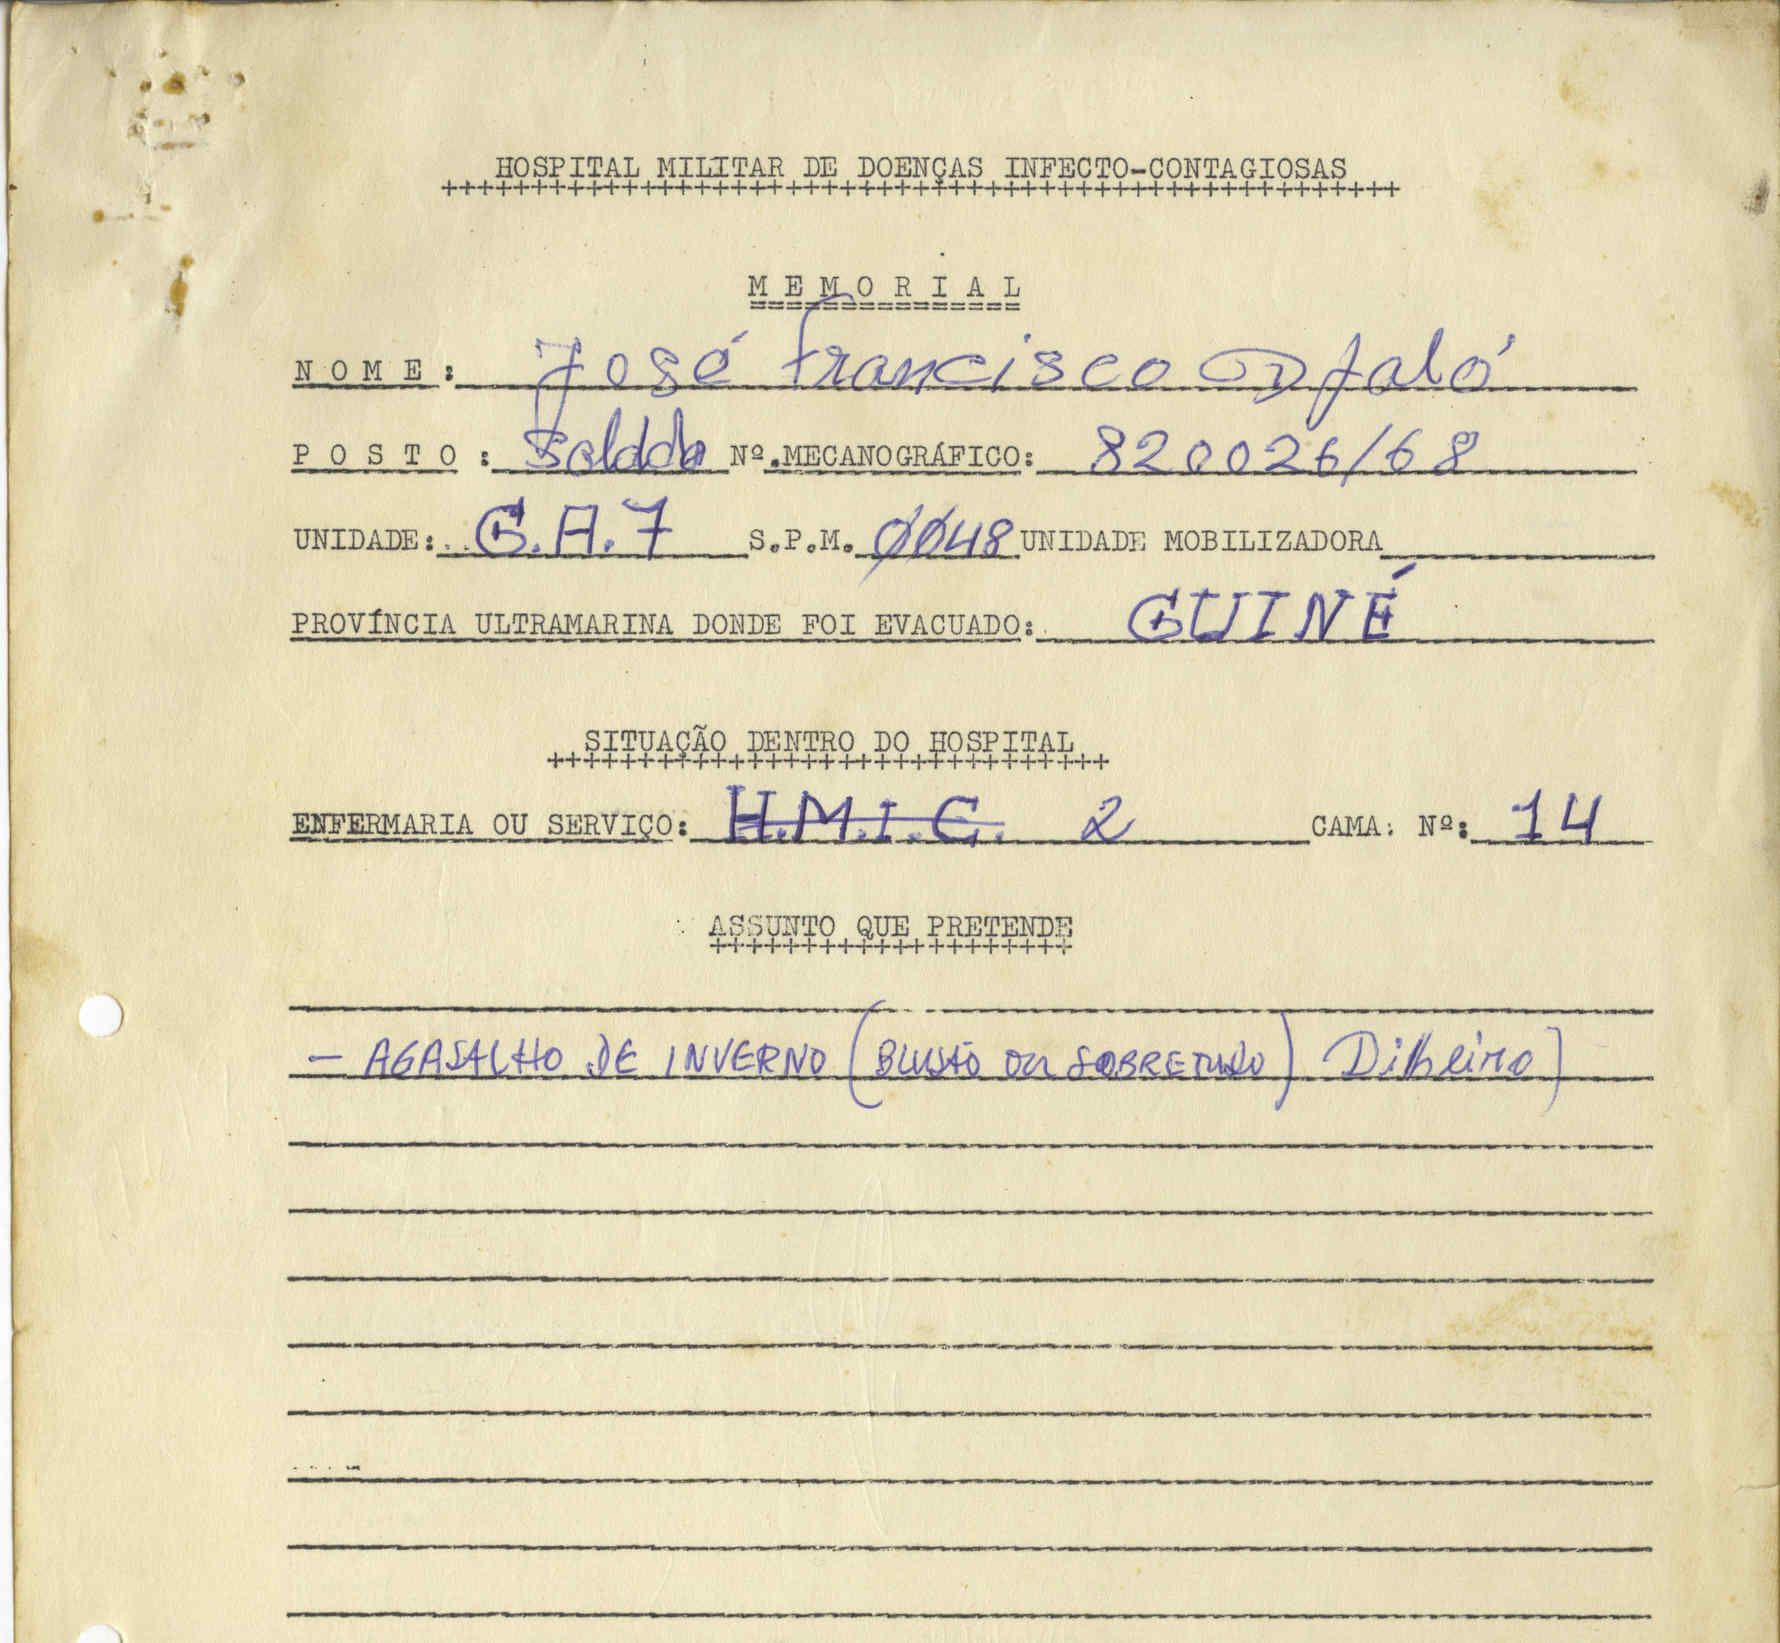 HOSPITAL MILITAR DE DOENÇAS INFECTO-CONTAGIOSAS
++++++++++++++++++++++++++++++++++++++++++++++++++++
M E M O R I A L
===============
N O M E : José Francisco Djaló
P O S T O : Soldado Nº.MECANOGRÁFICO: 820026/68
UNIDADE: G.A.7 S.P.M. 0048 UNIDADE MOBILIZADORA
PROVÍNCIA ULTRAMARINA DONDE FOI EVACUADO: GUINÉ
SITUAÇÃO DENTRO DO HOSPITAL
+++++++++++++++++++++++++++++++
ENFERMARIA OU SERVIÇO: H.M.I.C. 2 CAMA. Nº: 14
ASSUNTO QUE PRETENDE
++++++++++++++++++++
- AGASALHO DE INVERNO (BLUSÃO OU SOBRETUDO) Dilheiro)